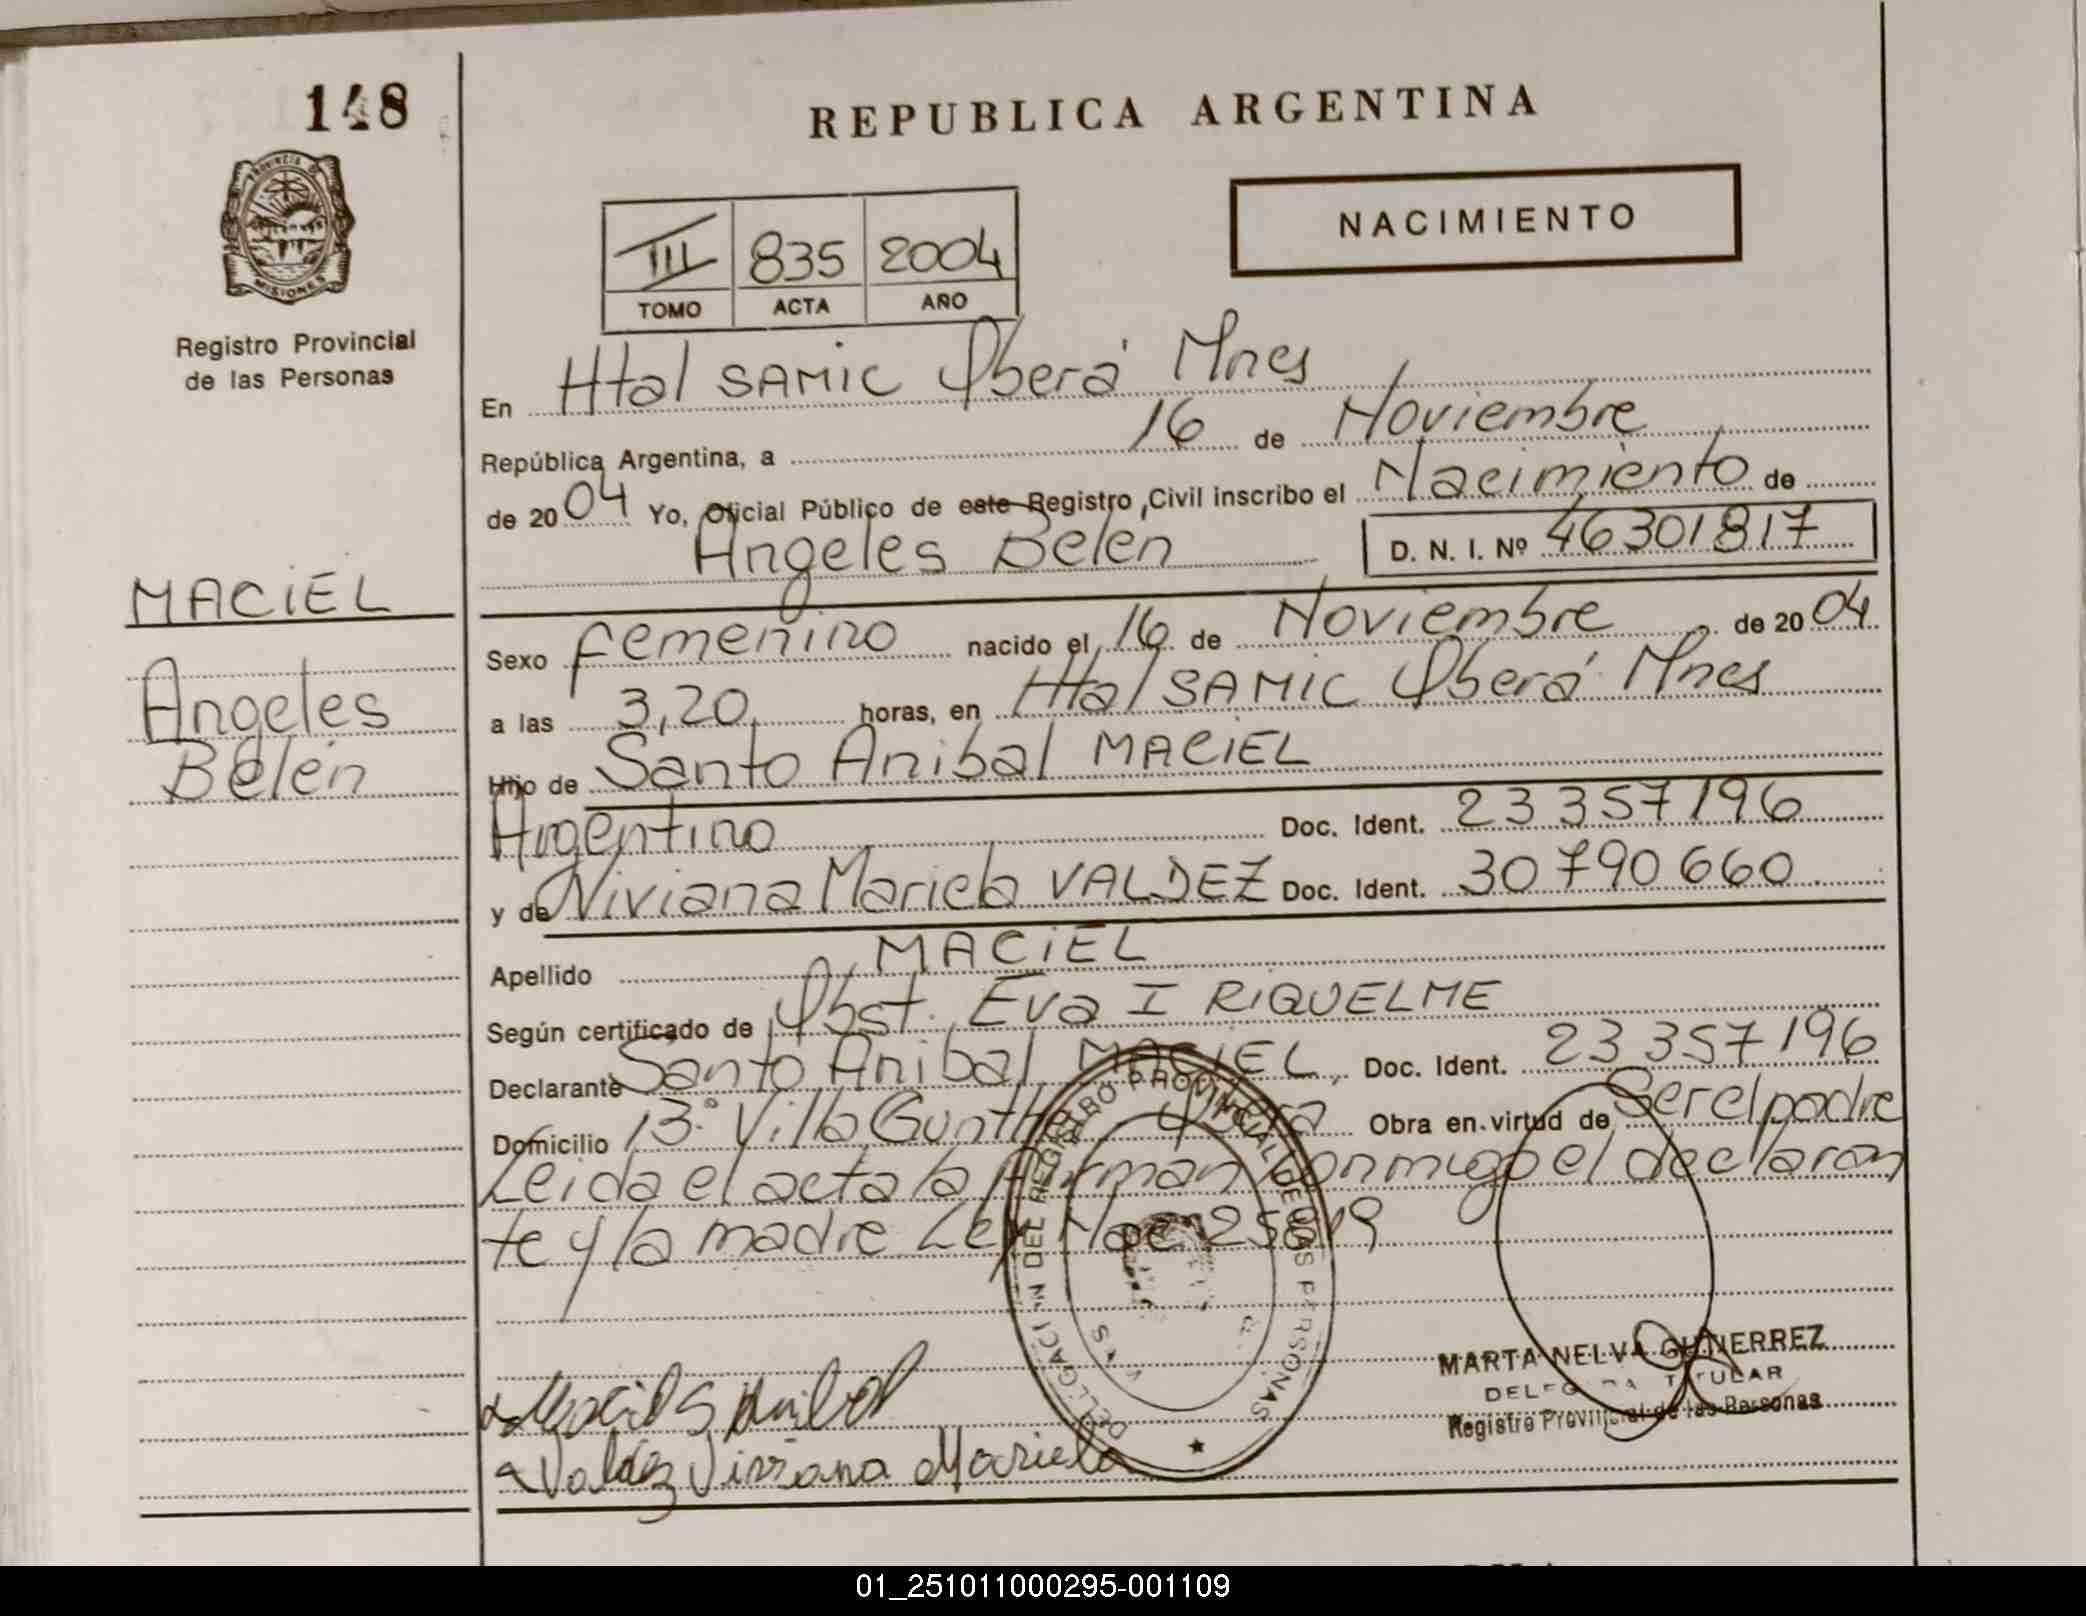 148
REPUBLICA ARGENTINA
PROVINCIA DE
MISIONES
Registro Provincial
de las Personas
NACIMIENTO
III 835 2004
TOMO ACTA AÑO
En Htal SAMIC Oberá Mnes
República Argentina, a 16 de Noviembre
de 2004 Yo, Oficial Público de este Registro Civil inscribo el Nacimiento de
Angeles Belen D. N. I. Nº 46301817
MACIEL
Angeles
Belén
Sexo femenino nacido el 16 de Noviembre de 2004
a las 3,20 horas, en Htal SAMIC Oberá Mnes
Hijo de Santo Anibal MACIEL
Argentino Doc. Ident. 23 357 196
y de Viviana Mariela VALDEZ Doc. Ident. 30 790 660
Apellido MACIEL
Según certificado de Obst. Eva I RIQUELME
Declarante Santo Anibal MACIEL, Doc. Ident. 23 357 196
Domicilio 13° Villa Obera Obra en virtud de Ser el padre
Leida el acta la firman conmigo el declaran
te y la madre Ley
DEL REGISTRO PROVINCIAL DE LAS PERSONAS
Maciel S Anibal
Valdez Viviana Mariela
MARTA NELVA GUTIERREZ
DELEGADA TITULAR
Registro Provincial de las Personas
01_251011000295-001109